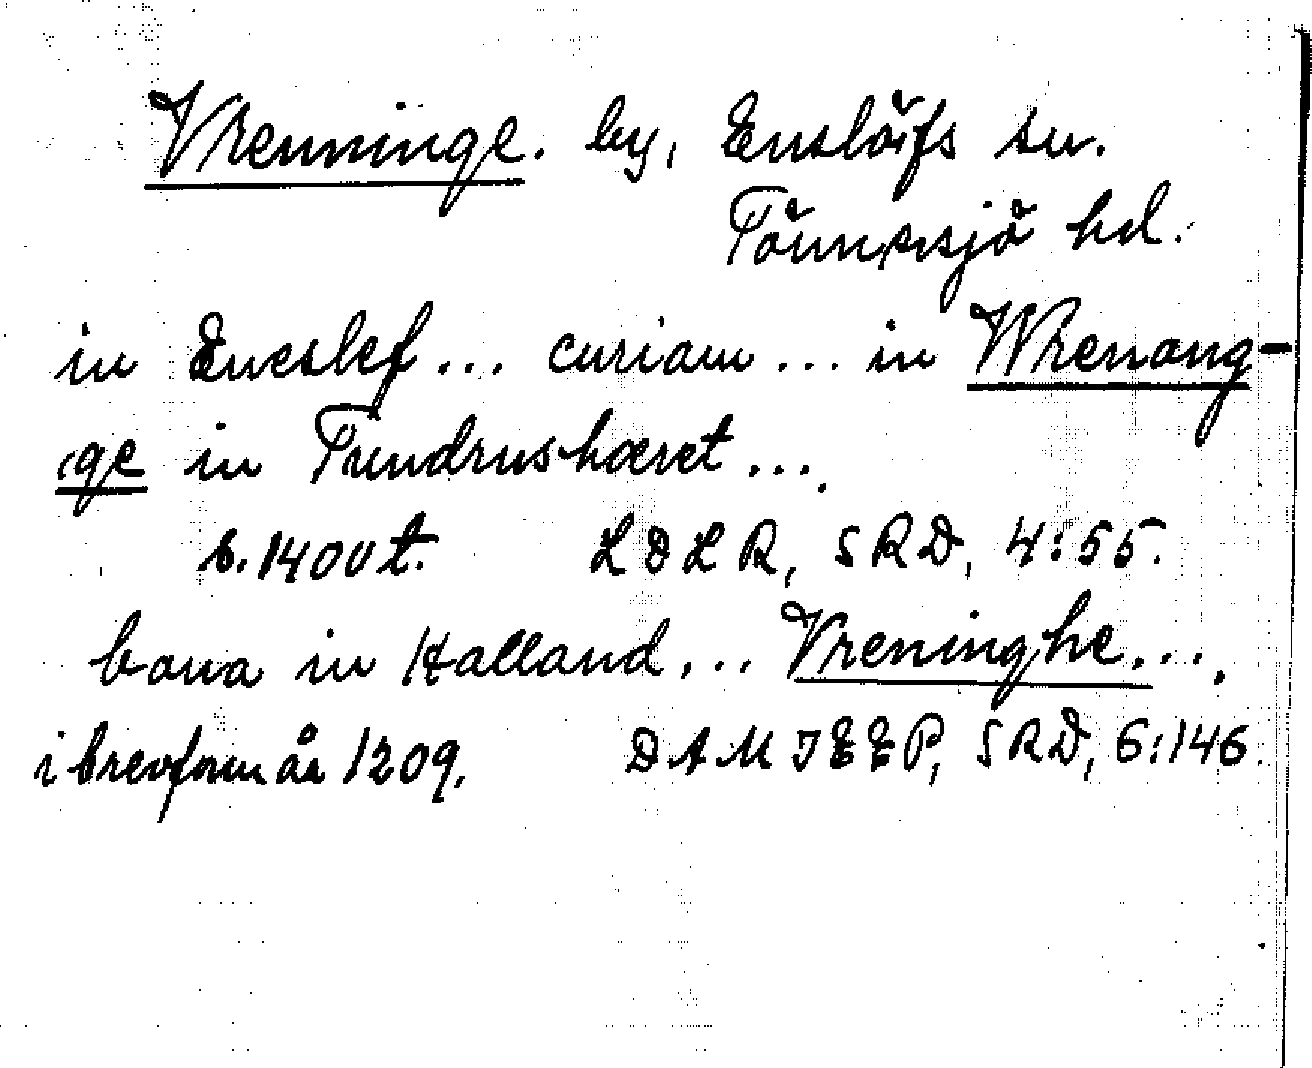 Vrenninge. by, Enslöfs sn.
Tönnersjö hd.
in Eneslef... curiam... in Wrenang-
ge in Tundrushæret....
b. 1400 t. L D L R, S R D, 4:55.
bona in Halland... Vreninghe....
i brevform år 1209. D A M I E E P, S R D, 6:146.